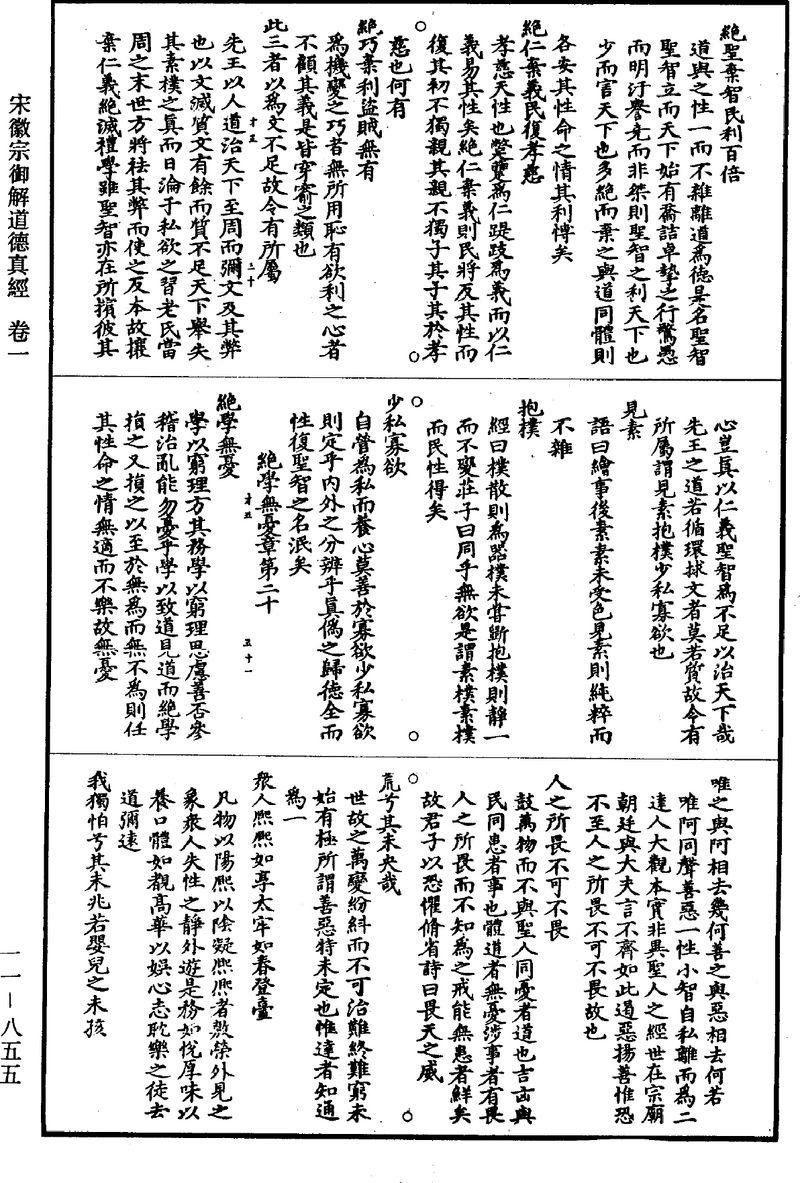 宋徽宗御解道德真經　卷一
絕聖棄智民利百倍
道與之性一而不雜離道為德是名聖智
聖智立而天下始有喬詰卓鷙之行驚愚
而明汙譽堯而非桀則聖智之利天下也
少而害天下也多絕而棄之與道同體則
各安其性命之情其利博矣
絕仁棄義民復孝慈
孝慈天性也蹩躠為仁踶跂為義而以仁
義易其性矣絕仁棄義則民將反其性而
復其初不獨親其親不獨子其子其於孝
慈也何有
絕巧棄利盜賊無有
為機變之巧者無所用恥有欲利之心者
不顧其義是皆穿窬之類也
此三者以為文不足故令有所屬
先王以人道治天下至周而彌文及其弊
也以文滅質文有餘而質不足天下舉失
其素樸之真而日淪于私欲之習老氏當
周之末世方將祛其弊而使之反本故攘
棄仁義絕滅禮學雖聖智亦在所擯彼其
心豈真以仁義聖智為不足以治天下哉
先王之道若循環捄文者莫若質故令有
所屬謂見素抱樸少私寡欲也
見素
語曰繪事後素素未受色見素則純粹而
不雜
抱樸
經曰樸散則為器樸未嘗斲抱樸則靜一
而不變莊子曰同乎無欲是謂素樸素樸
而民性得矣
少私寡欲
自營為私而養心莫善於寡欲少私寡欲
則定乎內外之分辨乎真偽之歸德全而
性復聖智之名泯矣
絕學無憂章第二十
絕學無憂
學以窮理方其務學以窮理思慮善否參
稽治亂能勿憂乎學以致道見道而絕學
損之又損之以至於無為而無不為則任
其性命之情無適而不樂故無憂
唯之與阿相去幾何善之與惡相去何若
唯阿同聲善惡一性小智自私離而為二
達人大觀本實非異聖人之經世在宗廟
朝廷與大夫言不齊如此遏惡揚善惟恐
不至人之所畏不可不畏故也
人之所畏不可不畏
鼓萬物而不與聖人同憂者道也吉凶與
民同患者事也體道者無憂涉事者有畏
人之所畏而不知為之戒能無患者鮮矣
故君子以恐懼脩省詩曰畏天之威
荒兮其未央哉
世故之萬變紛糾而不可治難終難窮未
始有極所謂善惡特未定也惟達者知通
為一
眾人熙熙如享太牢如春登臺
凡物以陽熙以陰凝熙熙者敷榮外見之
象眾人失性之靜外遊是務如悅厚味以
養口體如觀高華以娛心志耽樂之徒去
道彌遠
我獨怕兮其未兆若嬰兒之未孩
一一—八五五